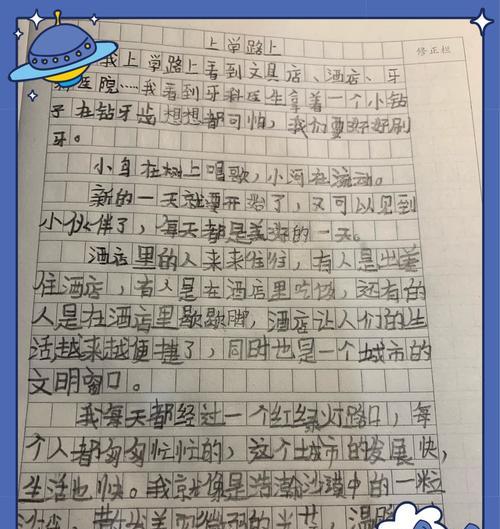 上学路上
修正栏
我上学路上看到文具店、酒店、牙
科医院……我看到牙科医生拿着一个小钻
子在钻牙齿想想都可怕，我们要好好刷
牙。
小鸟在树上唱歌，小河在流动。
新的一天就要开始了，又可以见到
小伙伴了，每天都是美好的一天。
酒店里的人来来往往，有人是出差
住酒店，有人是在酒店里吃饭，还有的
人是在酒店里歇歇脚，酒店让人们的生
活越来越便捷了，同时也是一个城市的
文明窗口。
我每天都经过一个红绿灯路口，每
个人都匆匆忙忙的，这个城市的发展快，
生活也快。我就像是浩瀚沙漠中的一粒